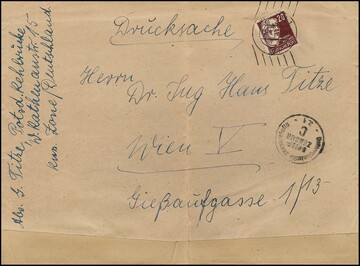 Drucksache
Herrn
Dr. Ing Hans Titze
Wien V
Gießaufgasse 1/13
Abs. S. Titze, Potsd. Rehbrücke
W. Rathenaustr. 15
russ. Zone / Deutschland
24